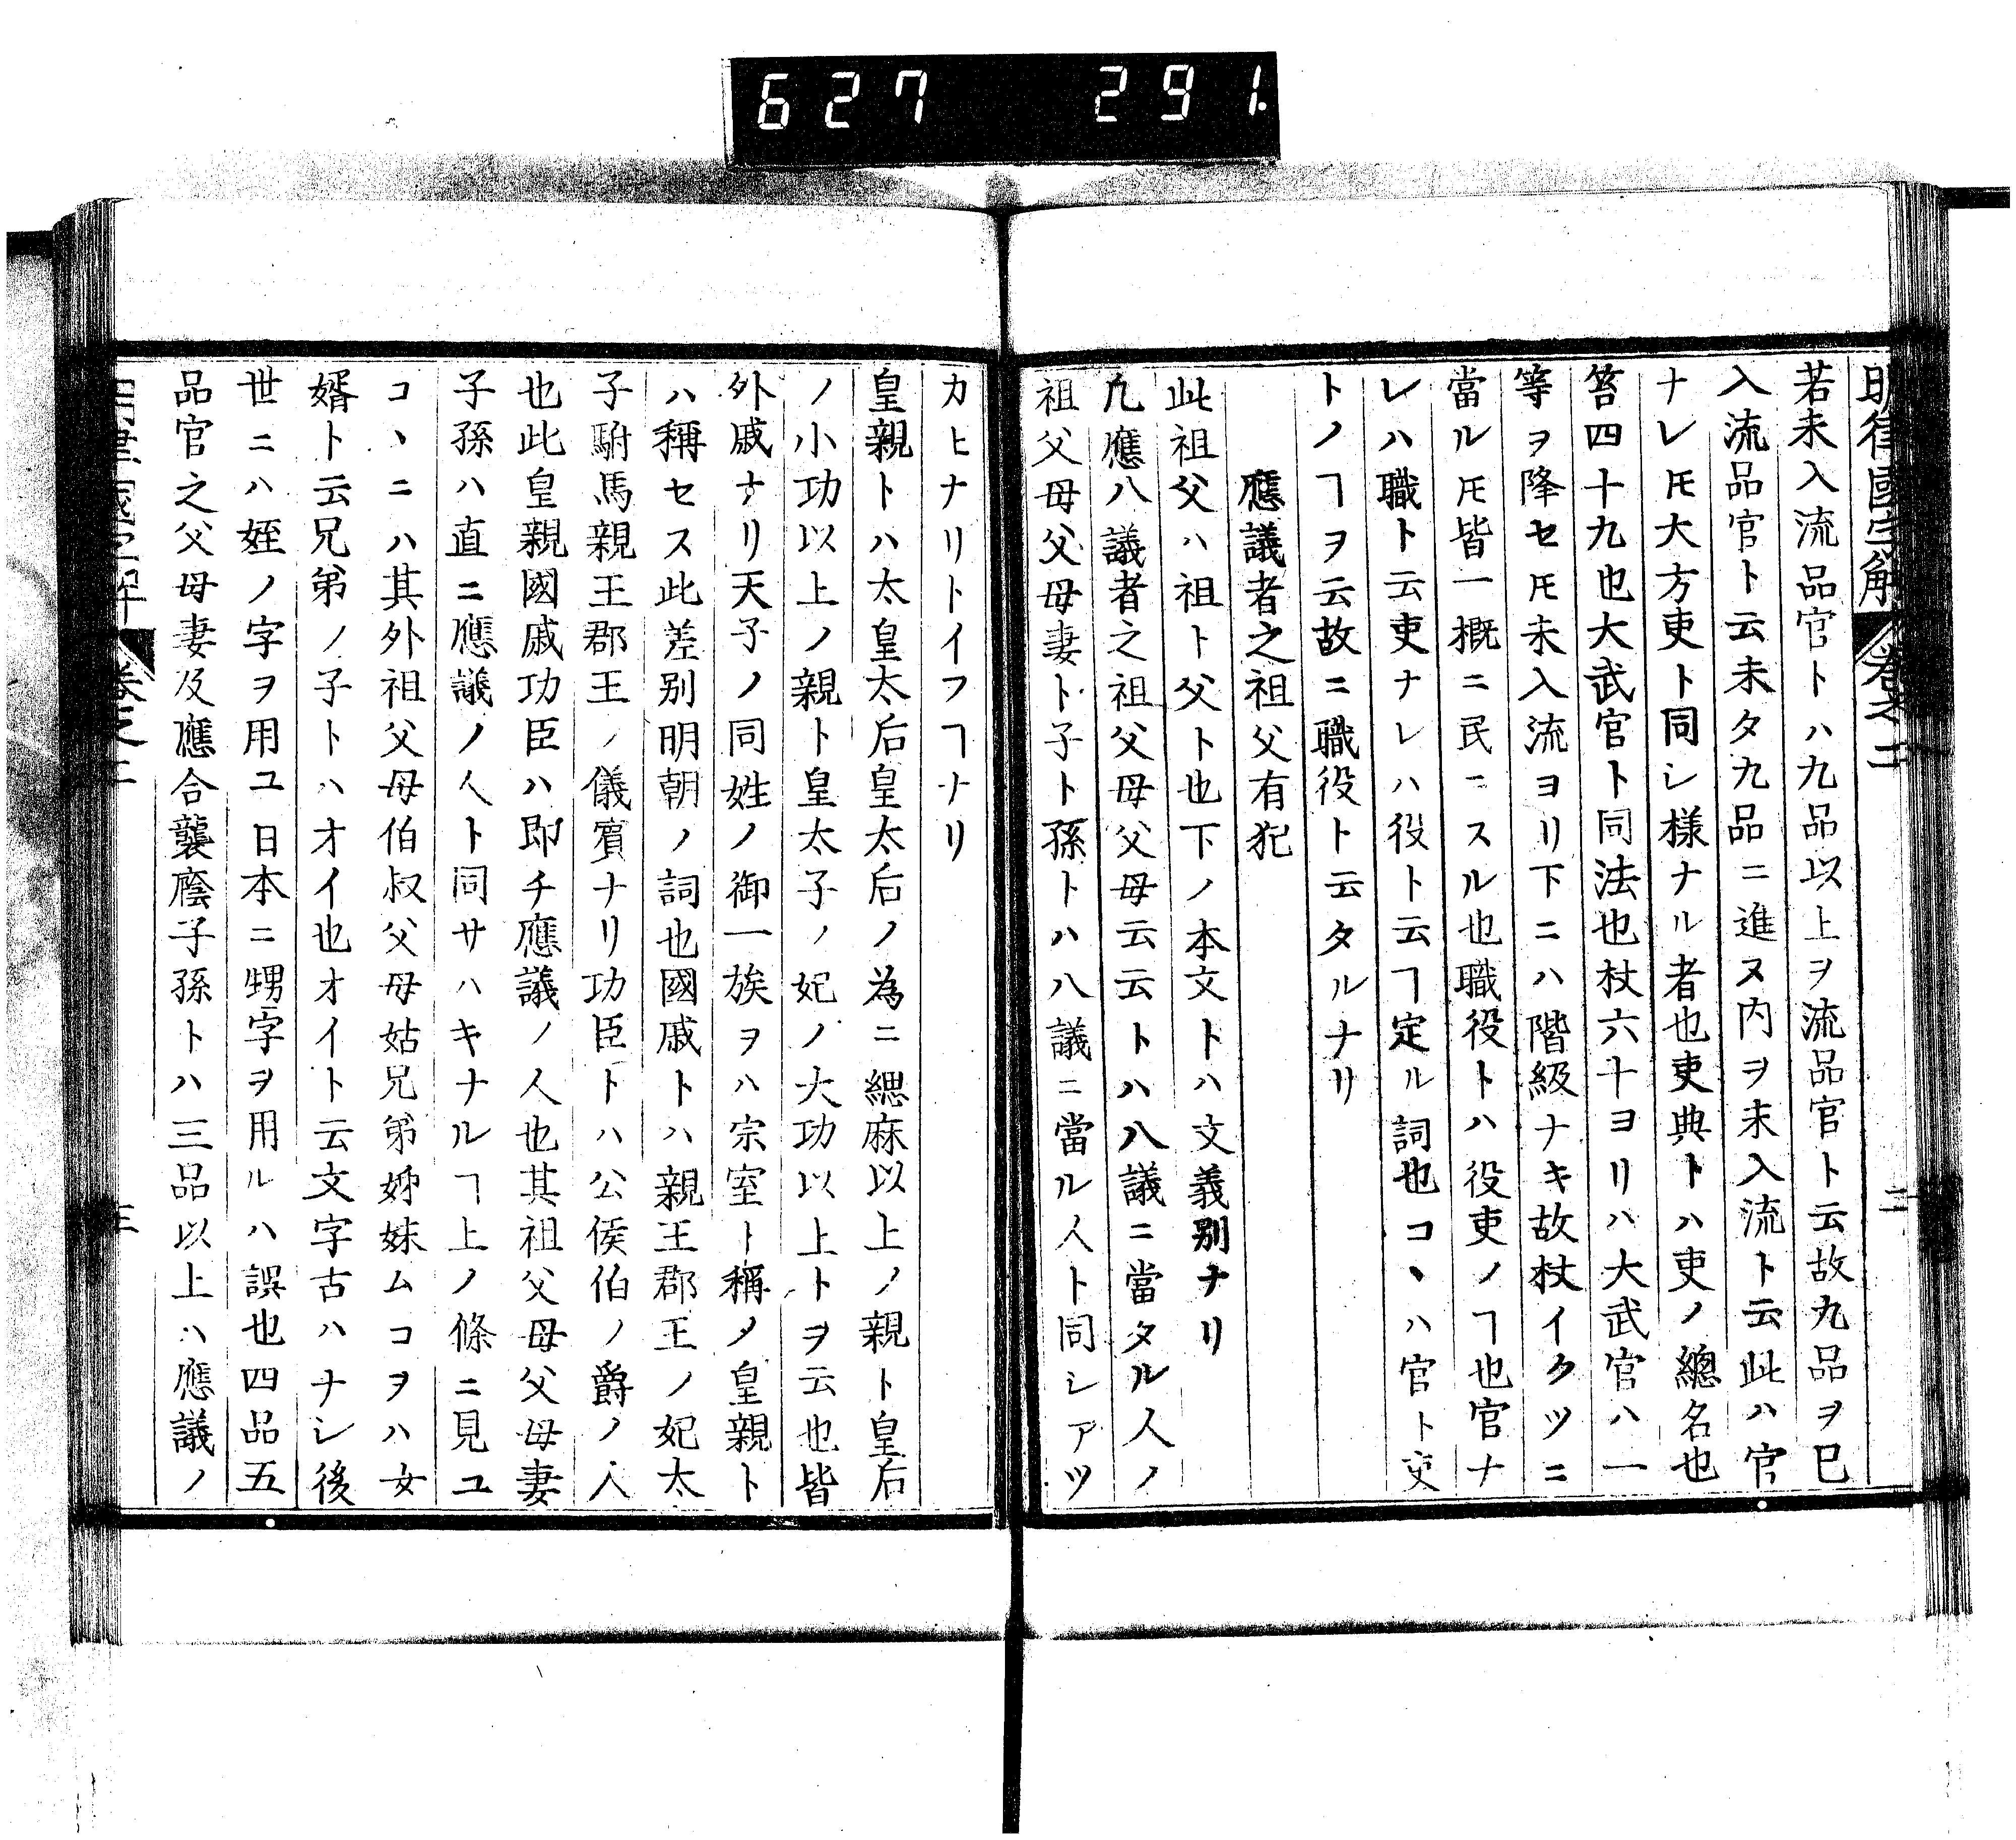 627 291.
明律國字解 卷之二 二
若未入流品官トハ九品以上ヲ流品官ト云故九品ヲ已
入流品官ト云未タ九品ニ進ヌ内ヲ未入流ト云此ハ官
ナレ𪜈大方吏ト同シ様ナル者也吏典トハ吏ノ總名也
笞四十九也大武官ト同法也杖六十ヨリハ大武官ハ一
等ヲ降セ𪜈未入流ヨリ下ニハ階級ナキ故杖イクツニ
當ル𪜈皆一概ニ民ニスル也職役トハ役吏ノヿ也官ナ
レハ職ト云吏ナレハ役ト云ヿ定ル詞也コヽハ官ト吏
トノヿヲ云故ニ職役ト云タルナリ
應議者之祖父有犯
此祖父ハ祖ト父ト也下ノ本文トハ文義別ナリ
凡應八議者之祖父母父母云云トハ八議ニ當タル人ノ
祖父母父母妻ト子ト孫トハ八議ニ當ル人ト同シアツ
カヒナリトイフヿナリ
皇親トハ太皇太后皇太后ノ為ニ緦麻以上ノ親ト皇后
ノ小功以上ノ親ト皇太子ノ妃ノ大功以上トヲ云也皆
外戚ナリ天子ノ同姓ノ御一族ヲハ宗室ト稱メ皇親ト
ハ稱セス此差别明朝ノ詞也國戚トハ親王郡王ノ妃太
子駙馬親王郡王ノ儀賓ナリ功臣トハ公侯伯ノ爵ノ人
也此皇親國戚功臣ハ即チ應議ノ人也其祖父母父母妻
子孫ハ直ニ應議ノ人ト同サハキナルヿ上ノ條ニ見ユ
コヽニハ其外祖父母伯叔父母姑兄弟姊妹ムコヲハ女
婿ト云兄弟ノ子トハオイ也オイト云文字古ハナシ後
世ニハ姪ノ字ヲ用ユ日本ニ甥字ヲ用ルハ誤也四品五
品官之父母妻及應合襲廕子孫トハ三品以上ハ應議ノ
卷之二 三